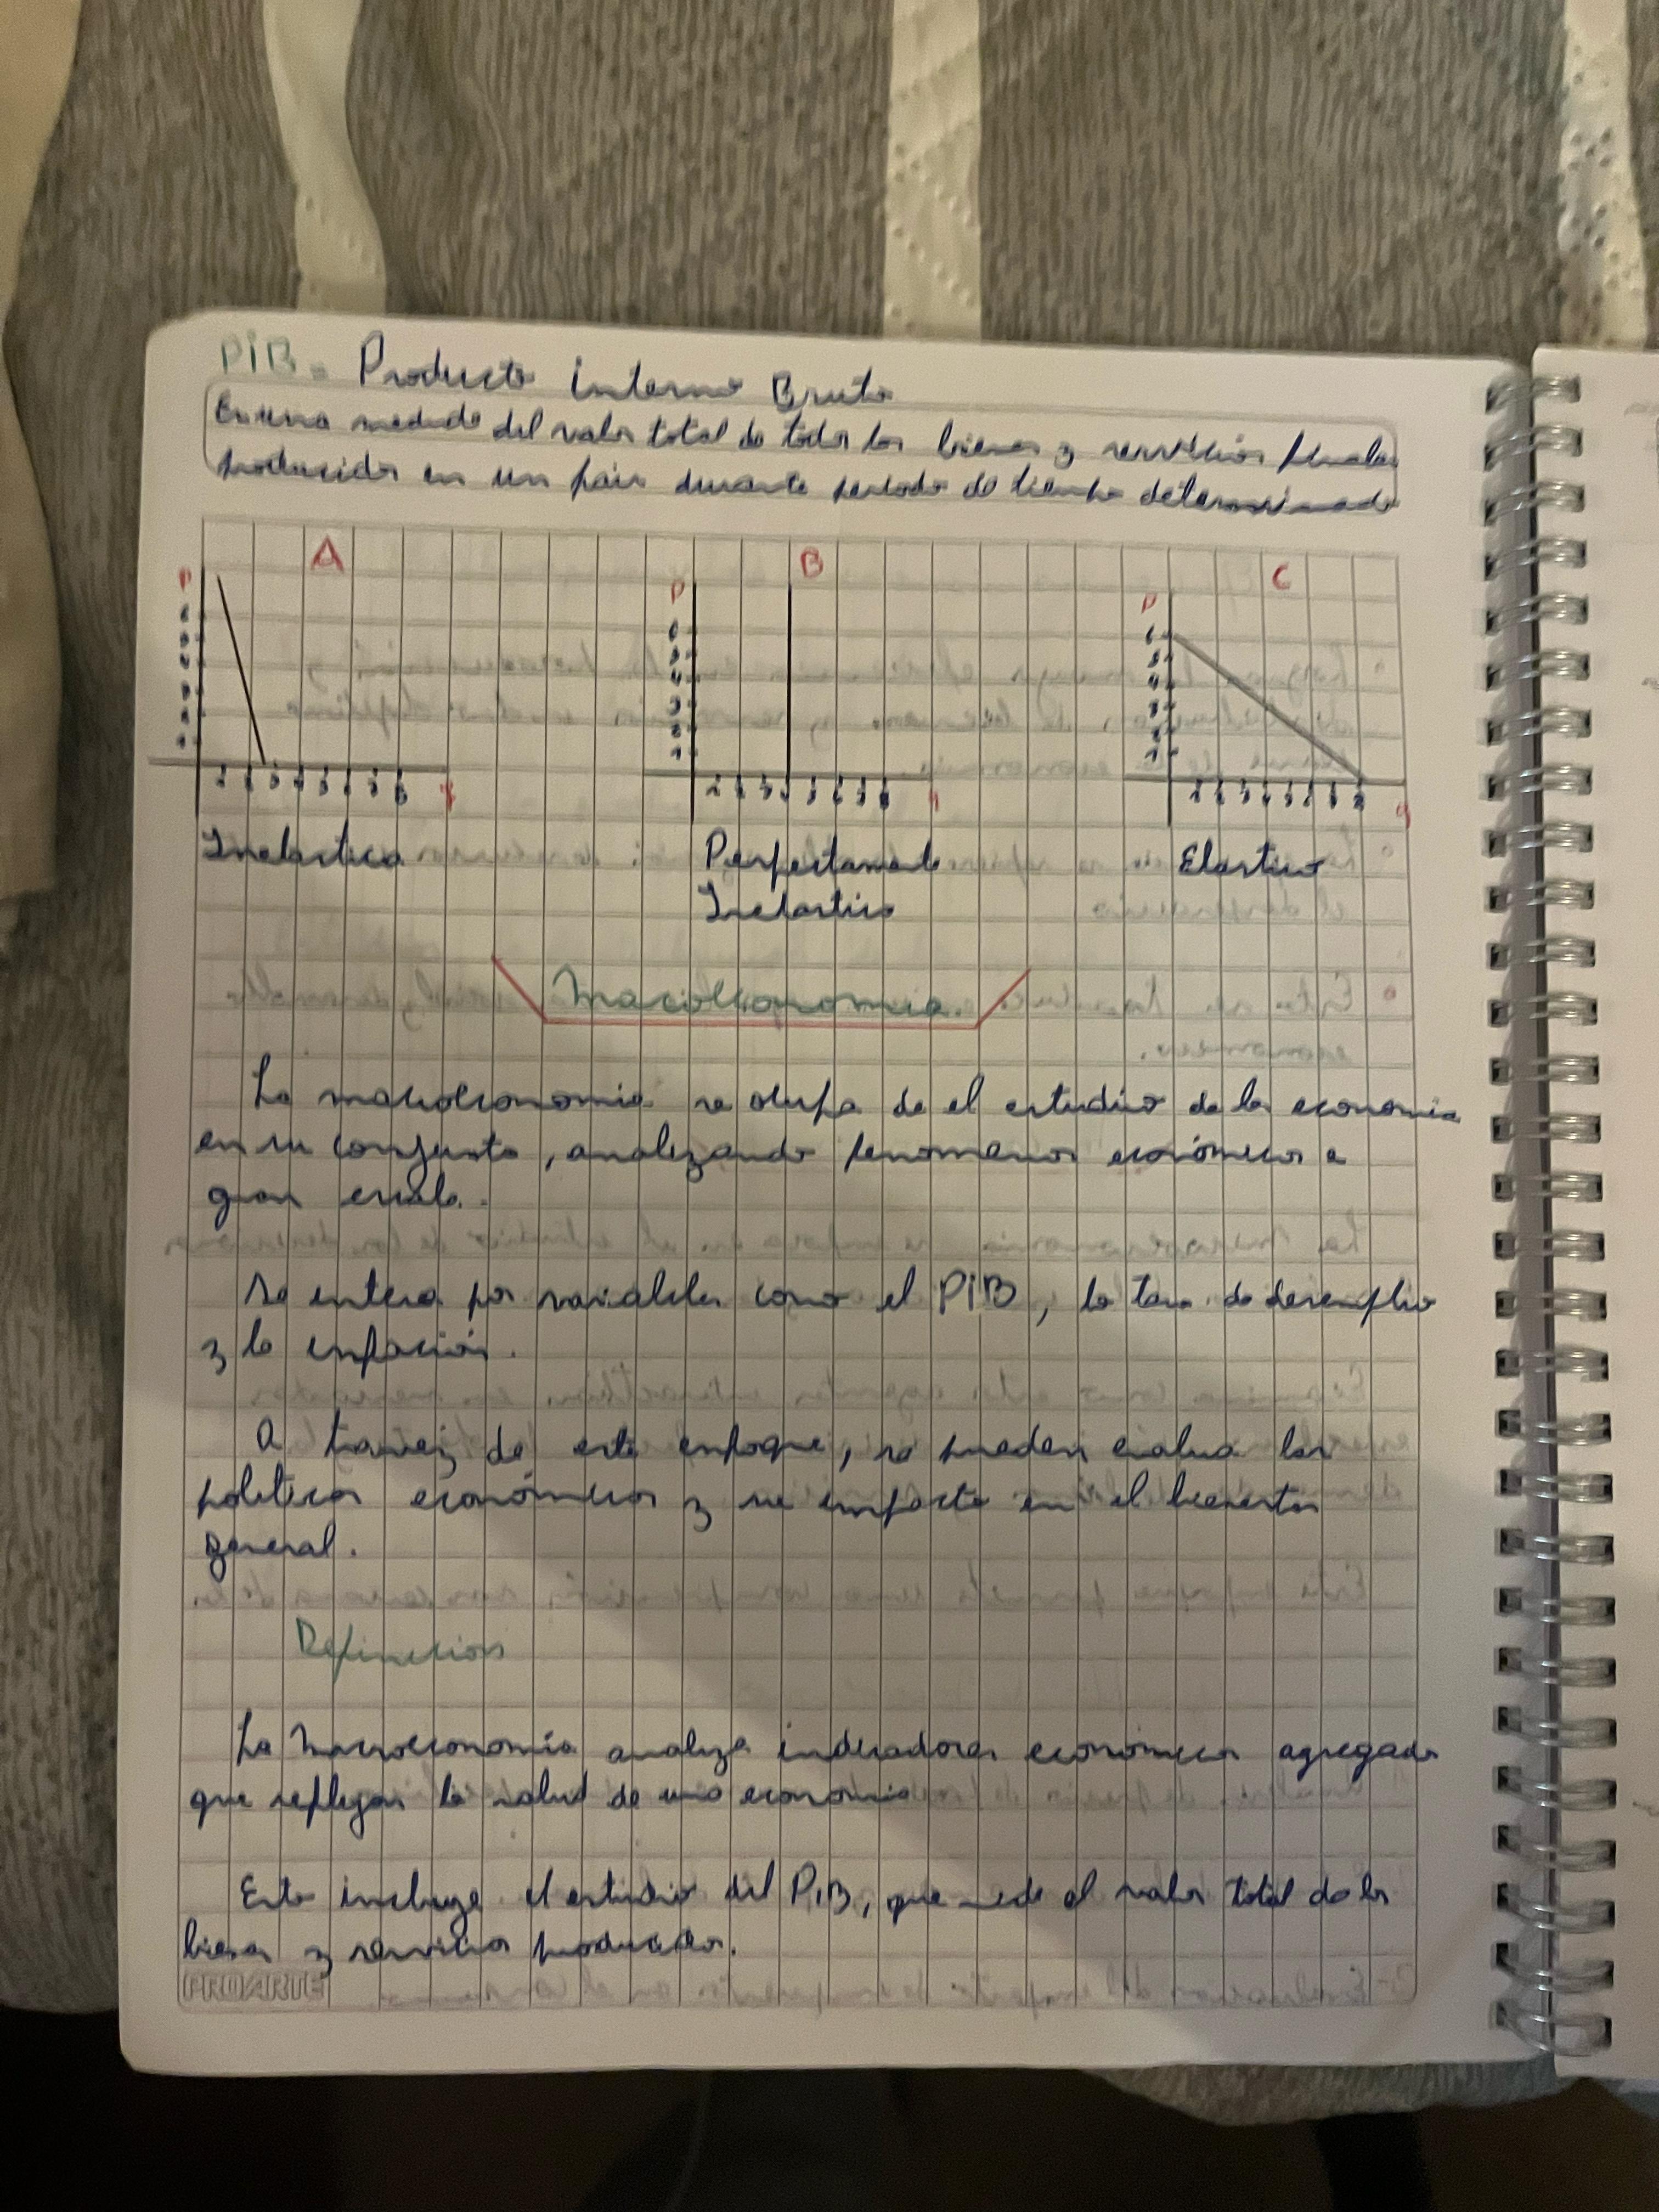 PiB = Producto interno Bruto
Es una medida del valor total de todos los bienes y servicios finales
producidos en un país durante periodo de tiempo determinado
A B C
P P P
6 6
5 5
4 4
3 3
2 2
1 1
q q q
Inelastica Perfectamente Elastico
Inelastico
Macroeconomia
La macroeconomia se ocupa de el estudio de la economia
en su conjunto, analizando fenomenos económicos a
gran escala.
Se entera por variables como el PiB, la tasa de desempleo
y la inflación.
A travez de este enfoque, se pueden evalua las
politicas económicas y su impacto en el bienestar
general.
Definicion
La Macroeconomía analiza indicadores económicos agregado
que reflejan la salud de una economia
Esto incluye el estudio del PiB, que mide el valor total de los
bienes y servicios producidos.
PROARTE